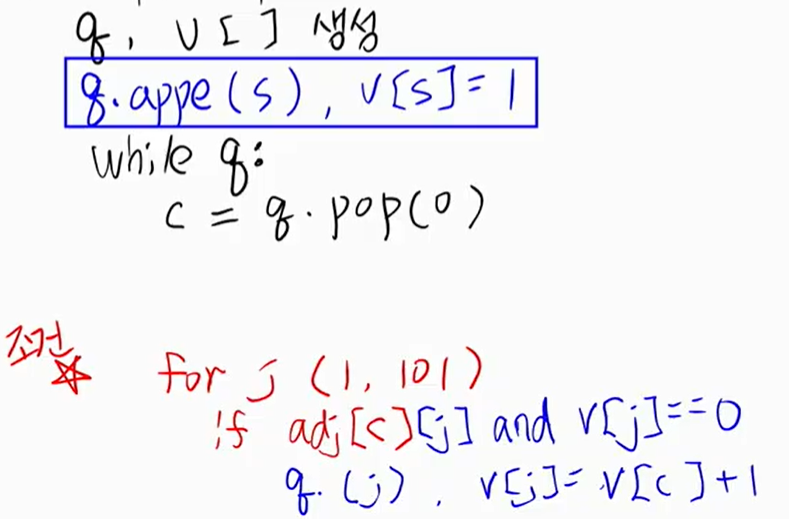 q, v[ ] 생성
q.appe(s), v[s]=1
while q:
c = q.pop(0)
조건
for j (1, 101)
if adj[c][j] and v[j]==0
q.(j), v[j]=v[c]+1